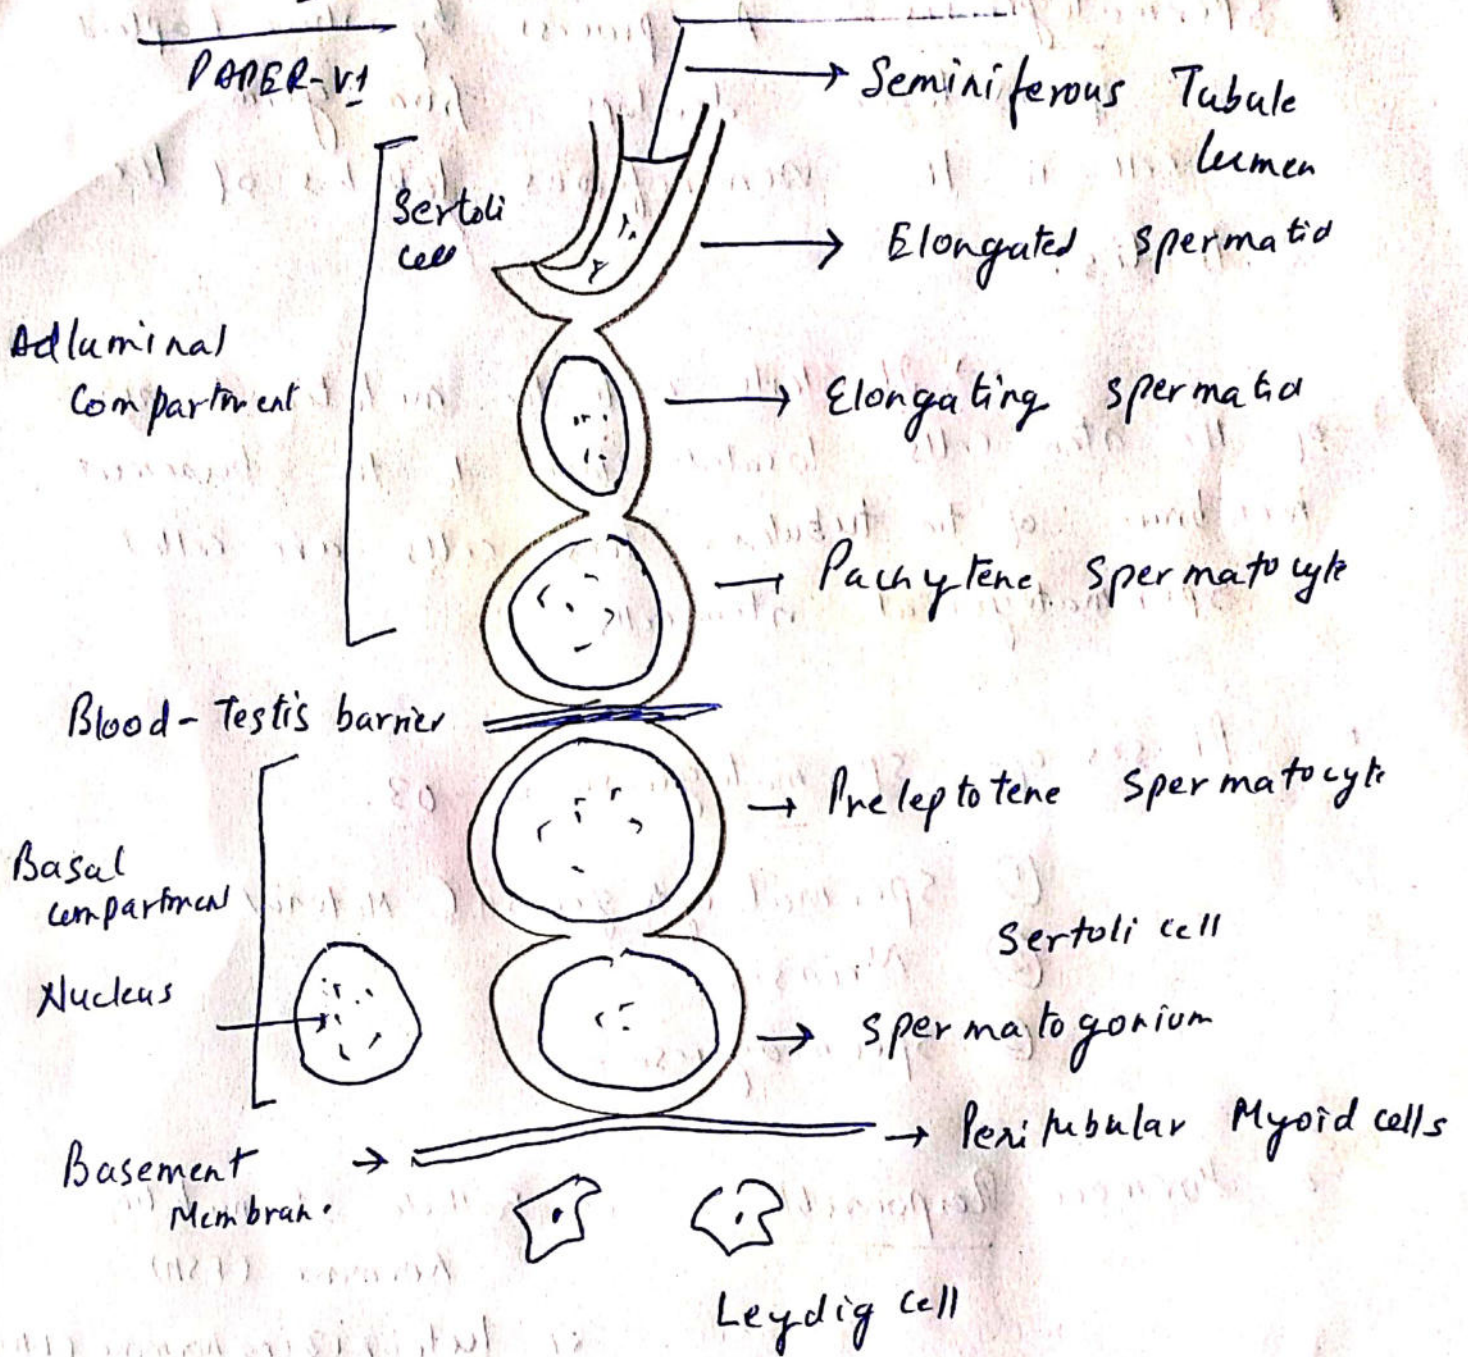 PAPER-V1
Seminiferous Tubule
lumen
Sertoli
cell
Elongated spermatid
Adluminal
Compartment
Elongating spermatid
Pachytene spermatocyte
Blood-Testis barrier
Preleptotene spermatocyte
Basal
compartment
Sertoli cell
Nucleus
spermatogonium
Peritubular Myoid cells
Basement
Membran.
Leydig cell